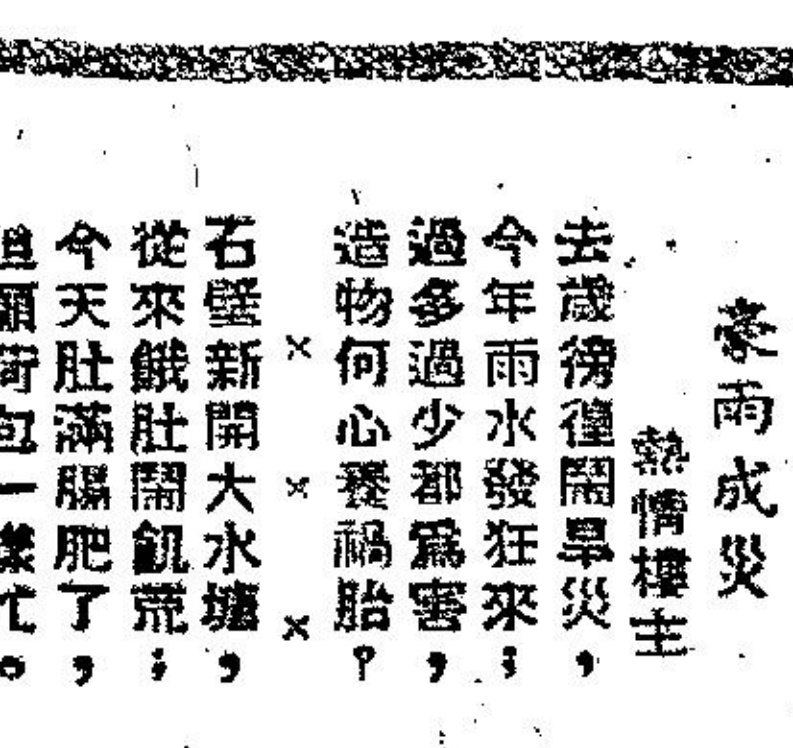 豪雨成災
熱情樓主
去歲徬徨鬧旱災，
今年雨水發狂來；
過多過少都為害，
造物何心養禍胎。
× × ×
石壁新開大水塘，
從來餓肚鬧飢荒；
今天肚滿腸肥了，
一樣忙。